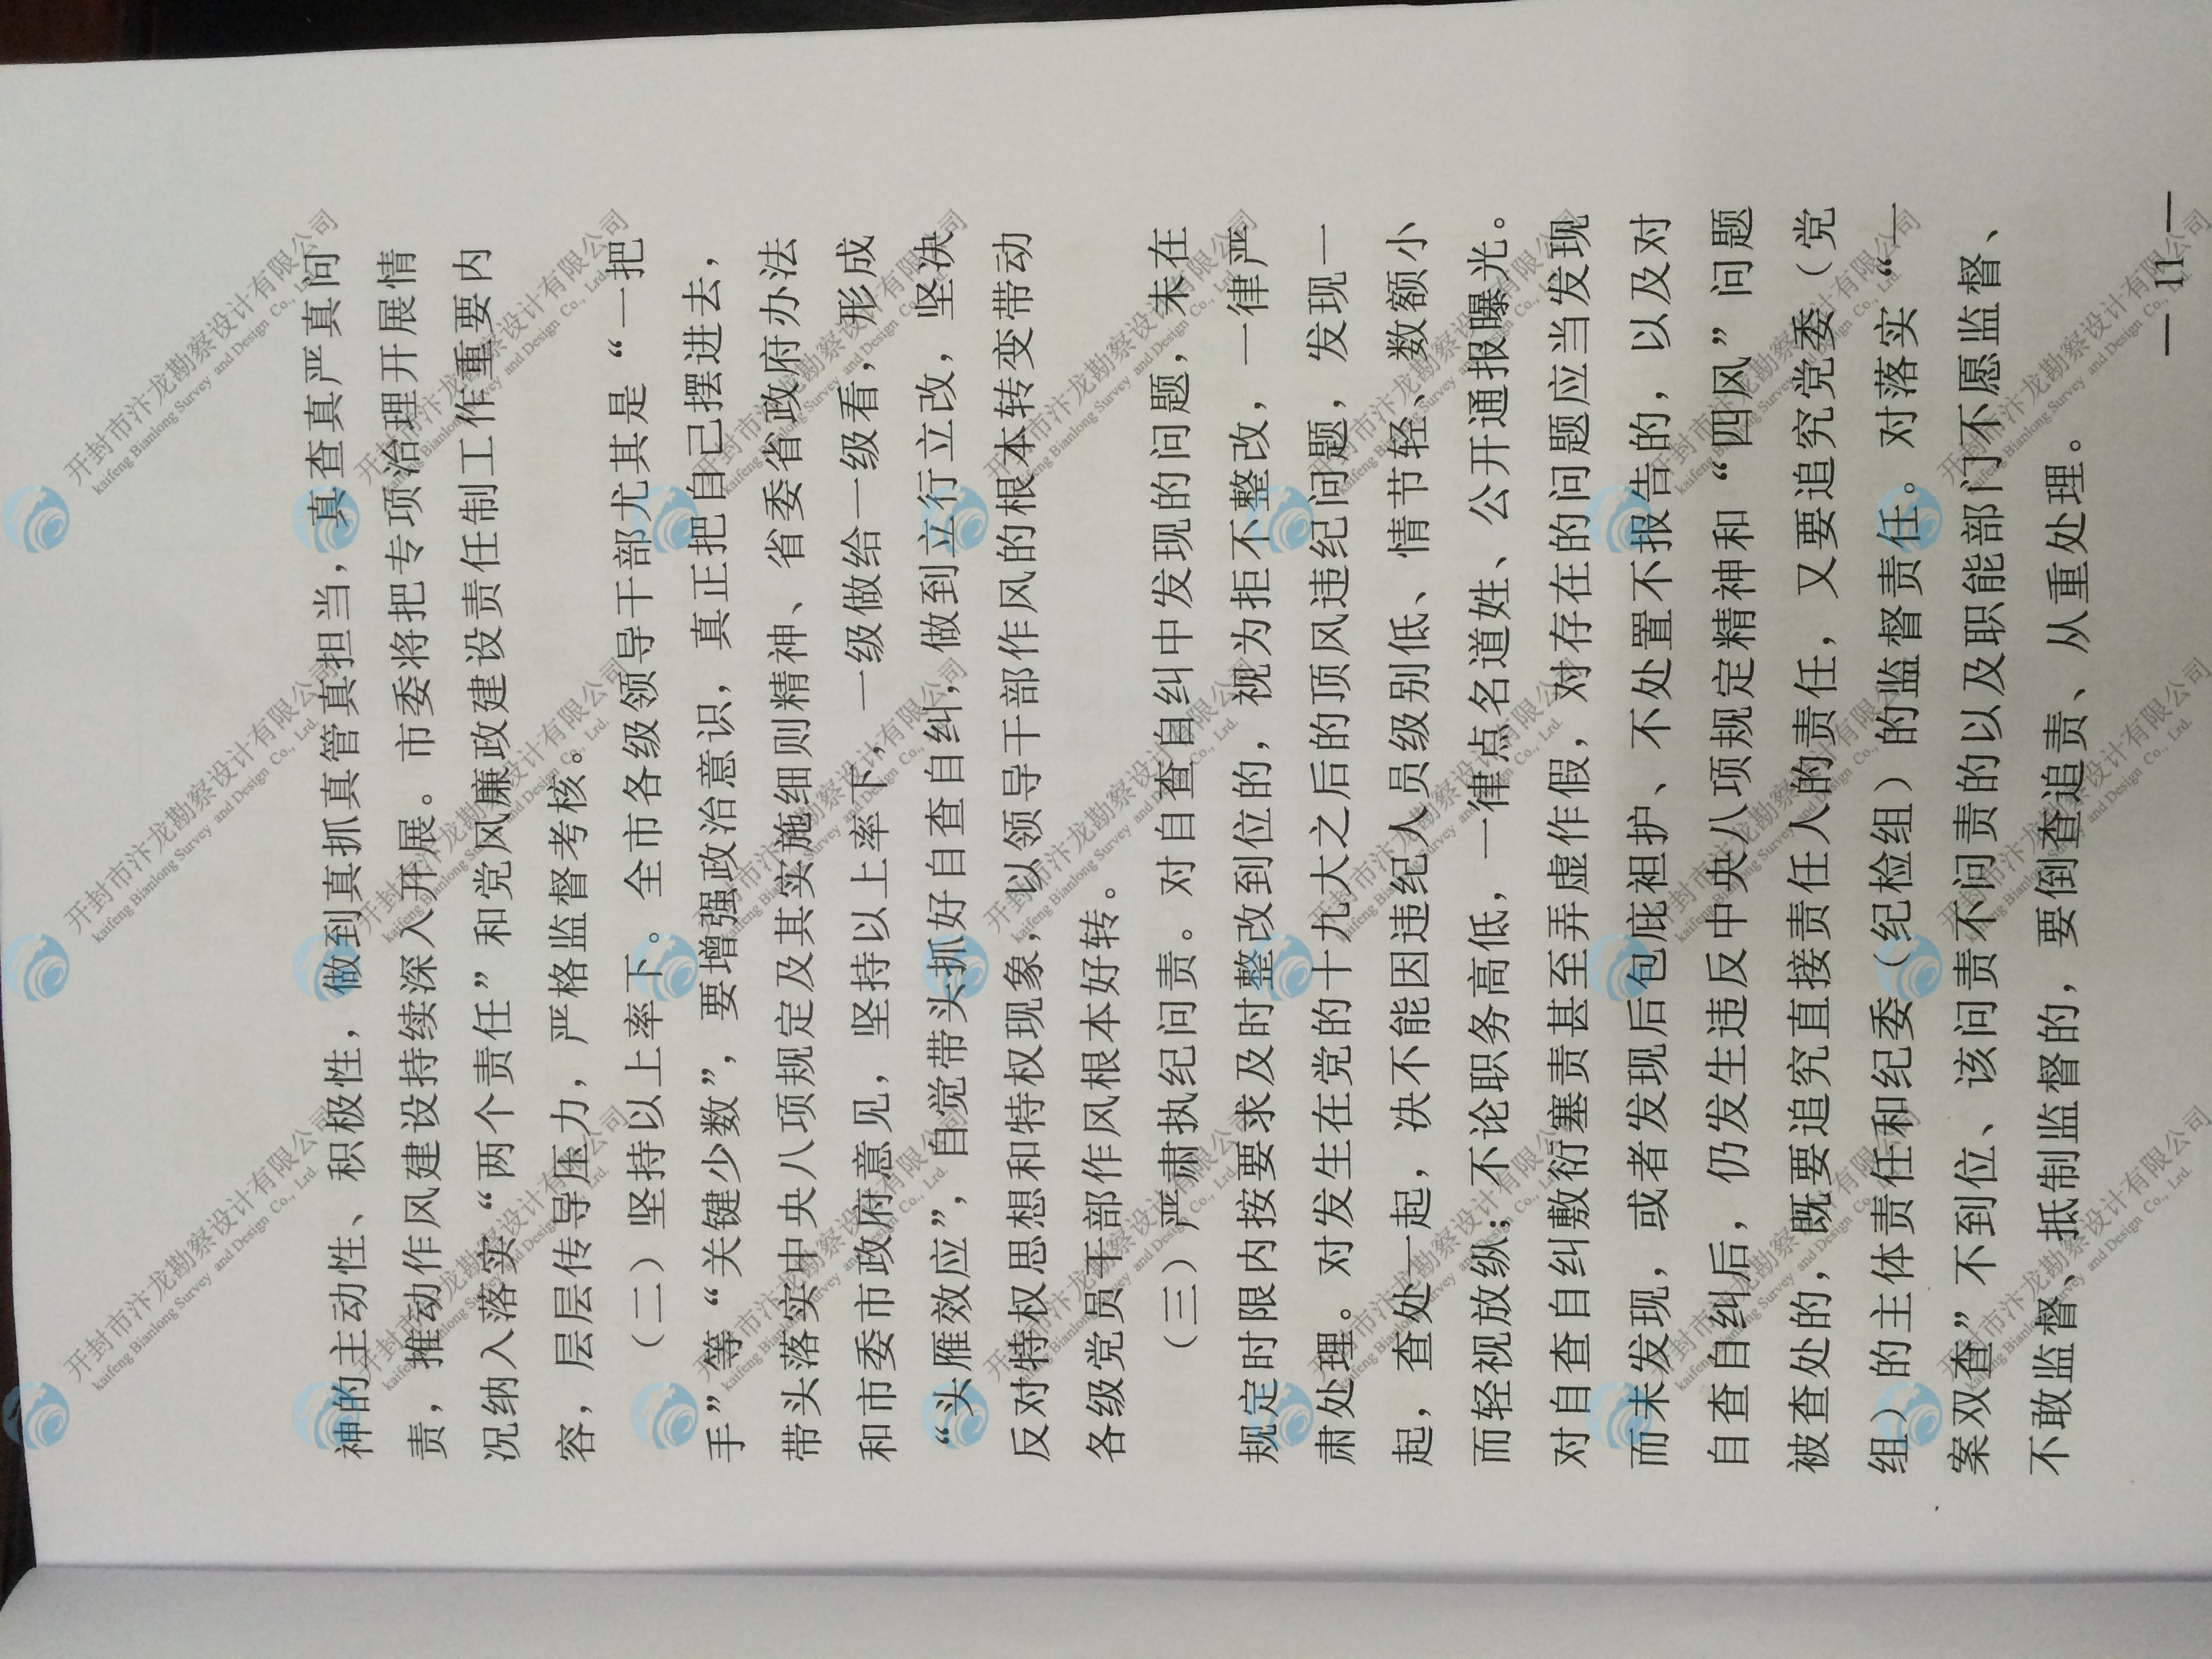 神的主动性、积极性，做到真抓真管真担当，真查真严真问
责，推动作风建设持续深入开展。市委将把专项治理开展情
况纳入落实“两个责任”和党风廉政建设责任制工作重要内
容，层层传导压力，严格监督考核。
（二）坚持以上率下。全市各级领导干部尤其是“一把
手”等“关键少数”，要增强政治意识，真正把自己摆进去，
带头落实中央八项规定及其实施细则精神、省委省政府办法
和市委市政府意见，坚持以上率下，一级做给一级看，形成
“头雁效应”，自觉带头抓好自查自纠，做到立行立改，坚决
反对特权思想和特权现象，以领导干部作风的根本转变带动
各级党员干部作风根本好转。
（三）严肃执纪问责。对自查自纠中发现的问题，未在
规定时限内按要求及时整改到位的，视为拒不整改，一律严
肃处理。对发生在党的十九大之后的顶风违纪问题，发现一
起，查处一起，决不能因违纪人员级别低、情节轻、数额小
而轻视放纵；不论职务高低，一律点名道姓、公开通报曝光。
对自查自纠敷衍塞责甚至弄虚作假，对存在的问题应当发现
而未发现，或者发现后包庇袒护、不处置不报告的，以及对
自查自纠后，仍发生违反中央八项规定精神和“四风”问题
被查处的，既要追究直接责任人的责任，又要追究党委（党
组）的主体责任和纪委（纪检组）的监督责任。对落实“一
案双查”不到位、该问责不问责的以及职能部门不愿监督、
不敢监督、抵制监督的，要倒查追责、从重处理。
— 11 —
开封市汴龙勘察设计有限公司
kaifeng Bianlong Survey and Design Co., Ltd.